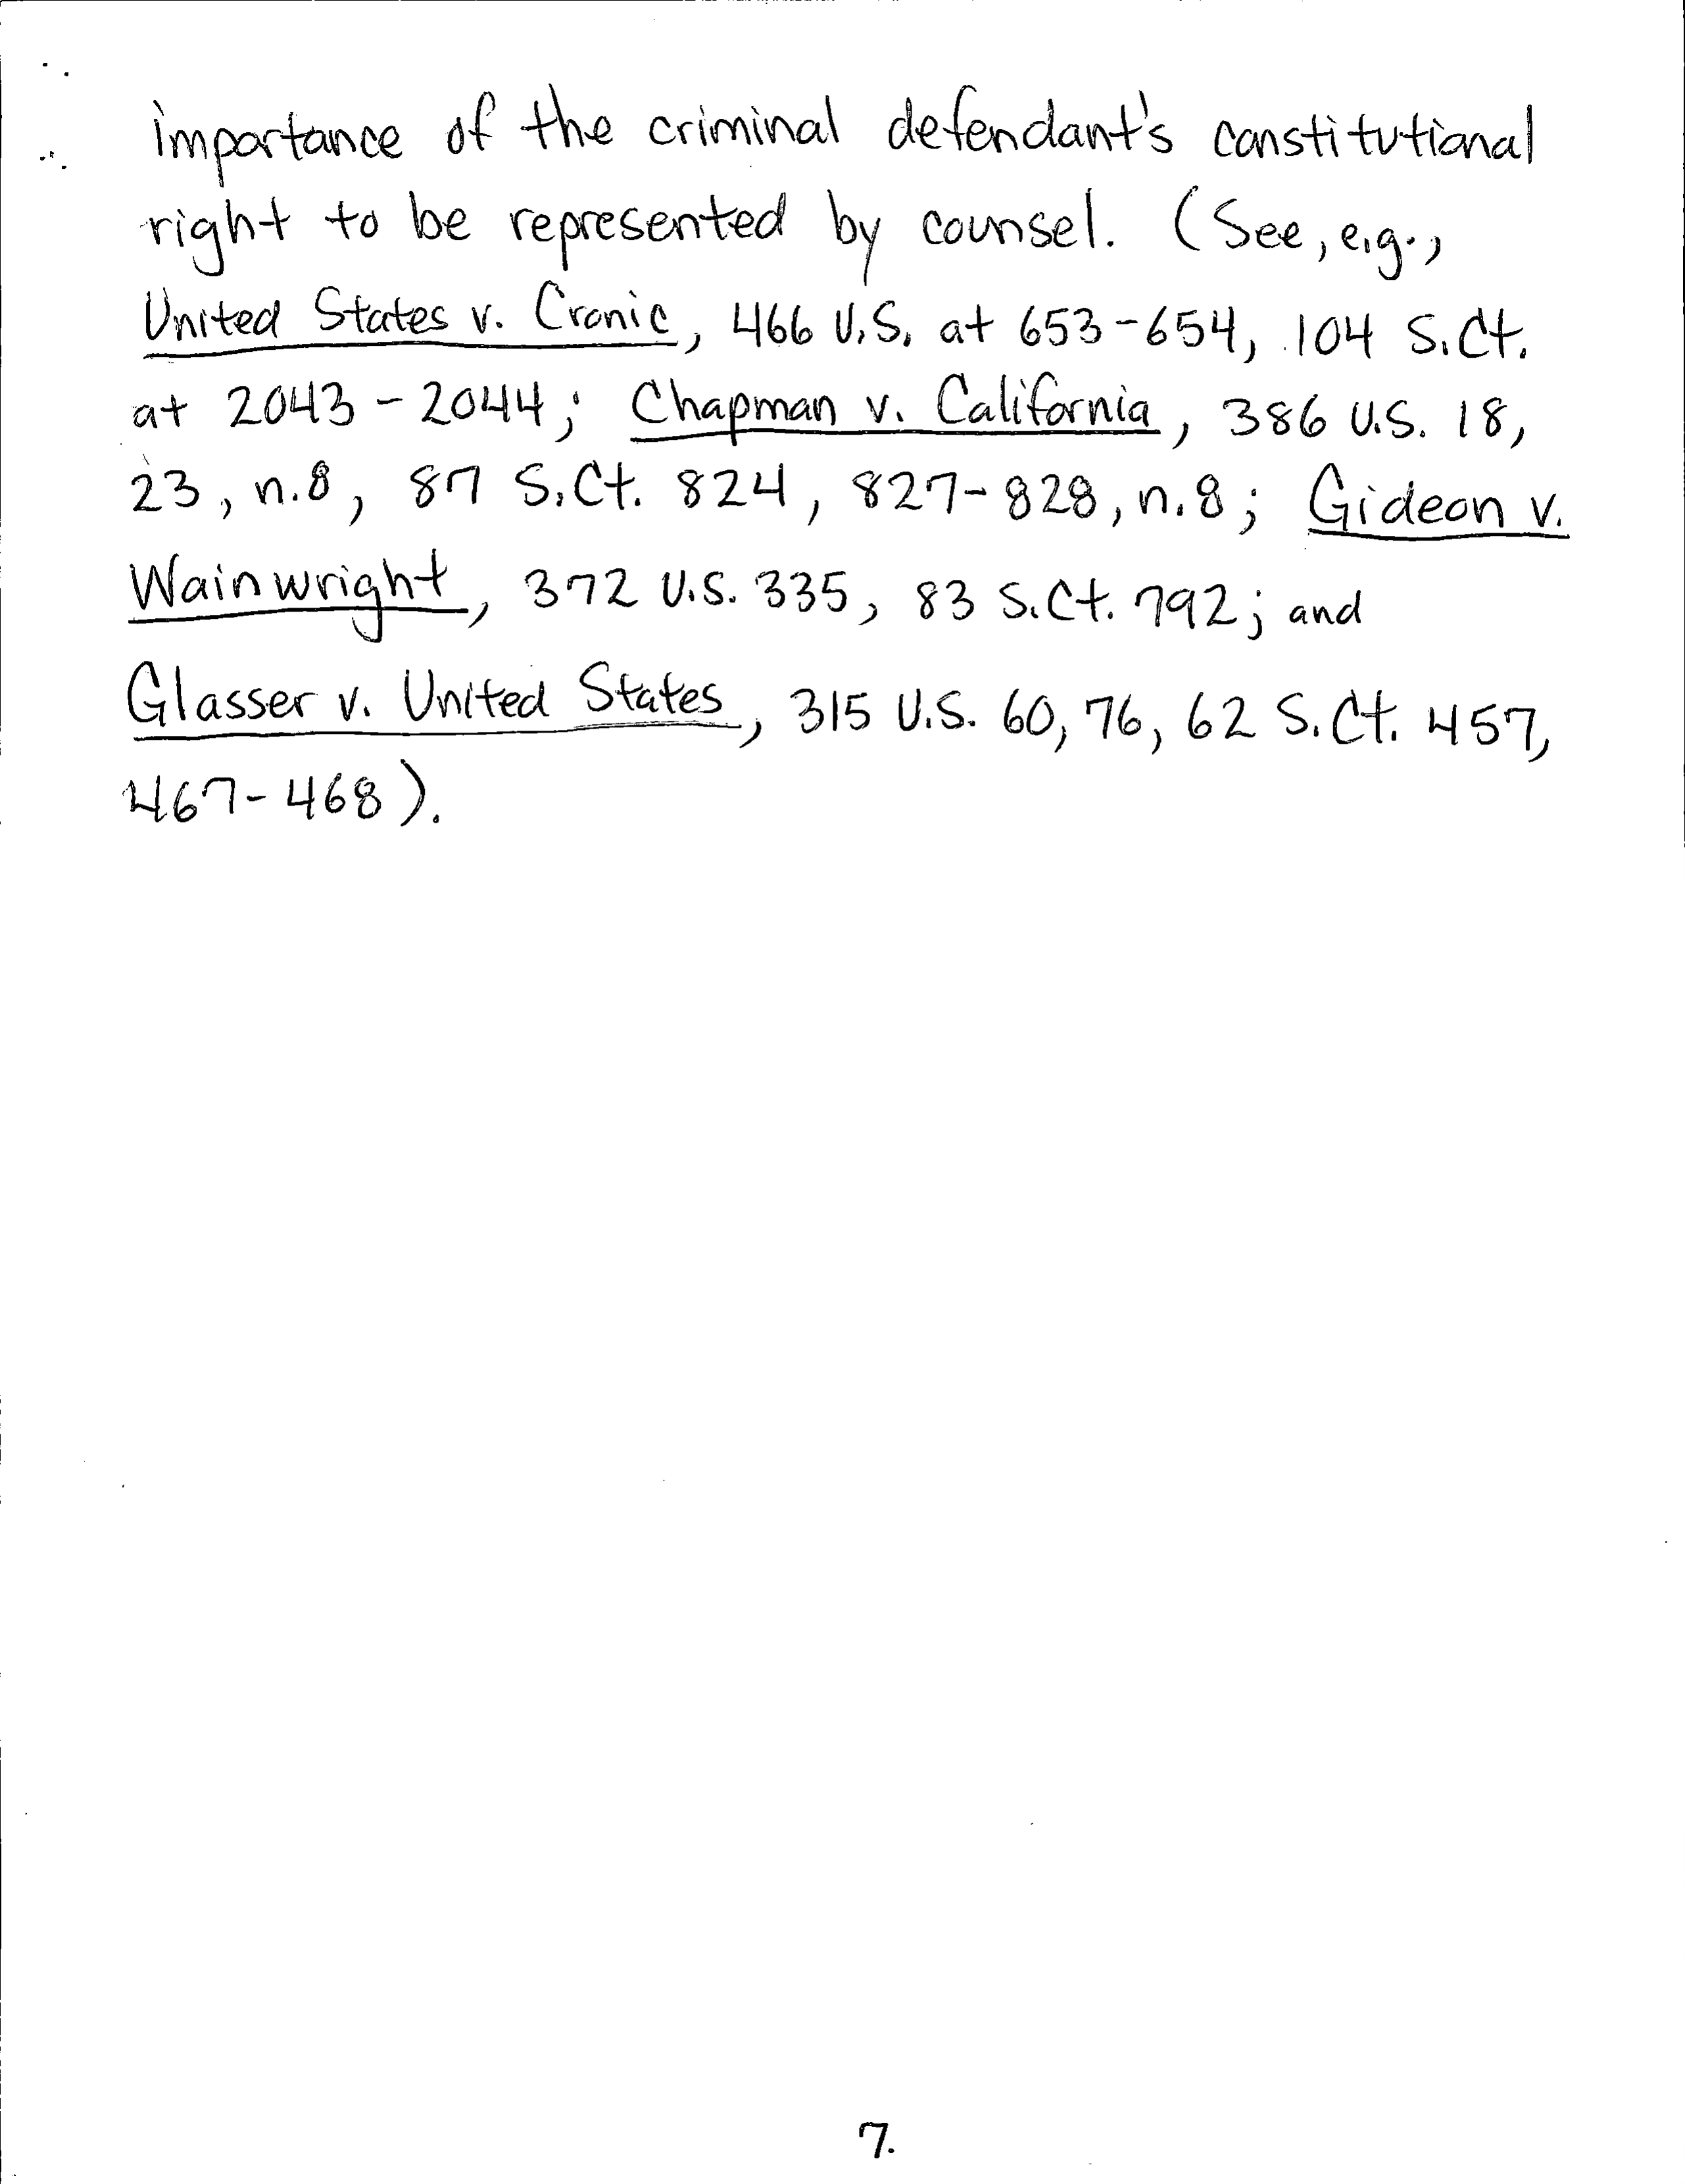 importance of the criminal defendant's constitutional
right to be represented by counsel. (See, e.g.,
United States v. Cronic, 466 U.S. at 653-654, 104 S.Ct.
at 2043-2044; Chapman v. California, 386 U.S. 18,
23, n.8, 87 S.Ct. 824, 827-828, n.8; Gideon v.
Wainwright, 372 U.S. 335, 83 S.Ct. 792; and
Glasser v. United States, 315 U.S. 60, 76, 62 S.Ct. 457,
467-468).
7.